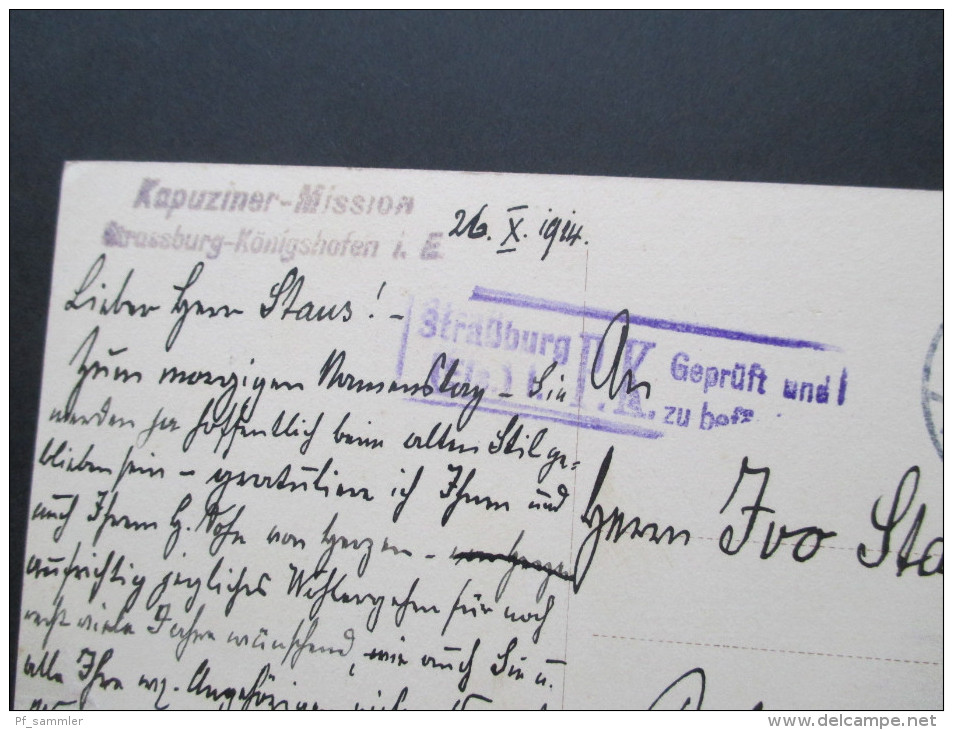 Kapuziner-Mission
Strassburg-Königshofen i. E.
26. X. 1914.
Lieber Herr Staus! -
Zum morgigen Namenstag - Sie
werden ja hoffentlich beim alten Stil ge=
blieben sein - gratuliere ich Ihnen und
auch Ihrem H. Sohn von Herzen - von Herzen
aufrichtig jegliches Wohlergehen für noch
recht viele Jahre wünschend, wie auch Sie u.
alle Ihre Angehörigen
Straßburg
P.K.
Geprüft und
zu bef
An
Herrn Ivo Sta
Pf_sammler
www.delcampe.net